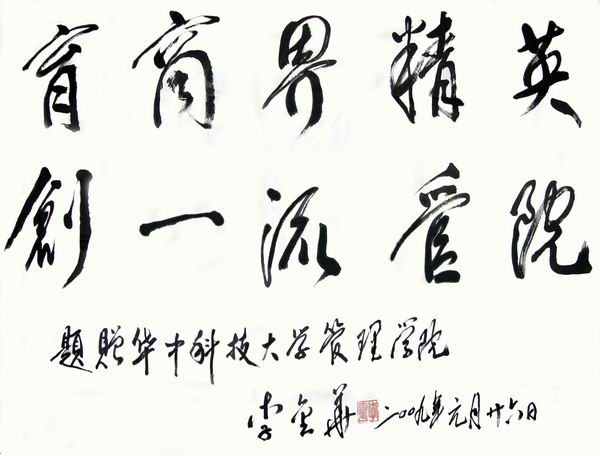 育商界精英
創一流管院
題贈华中科技大学管理学院
李金華 二〇〇九年元月廿六日